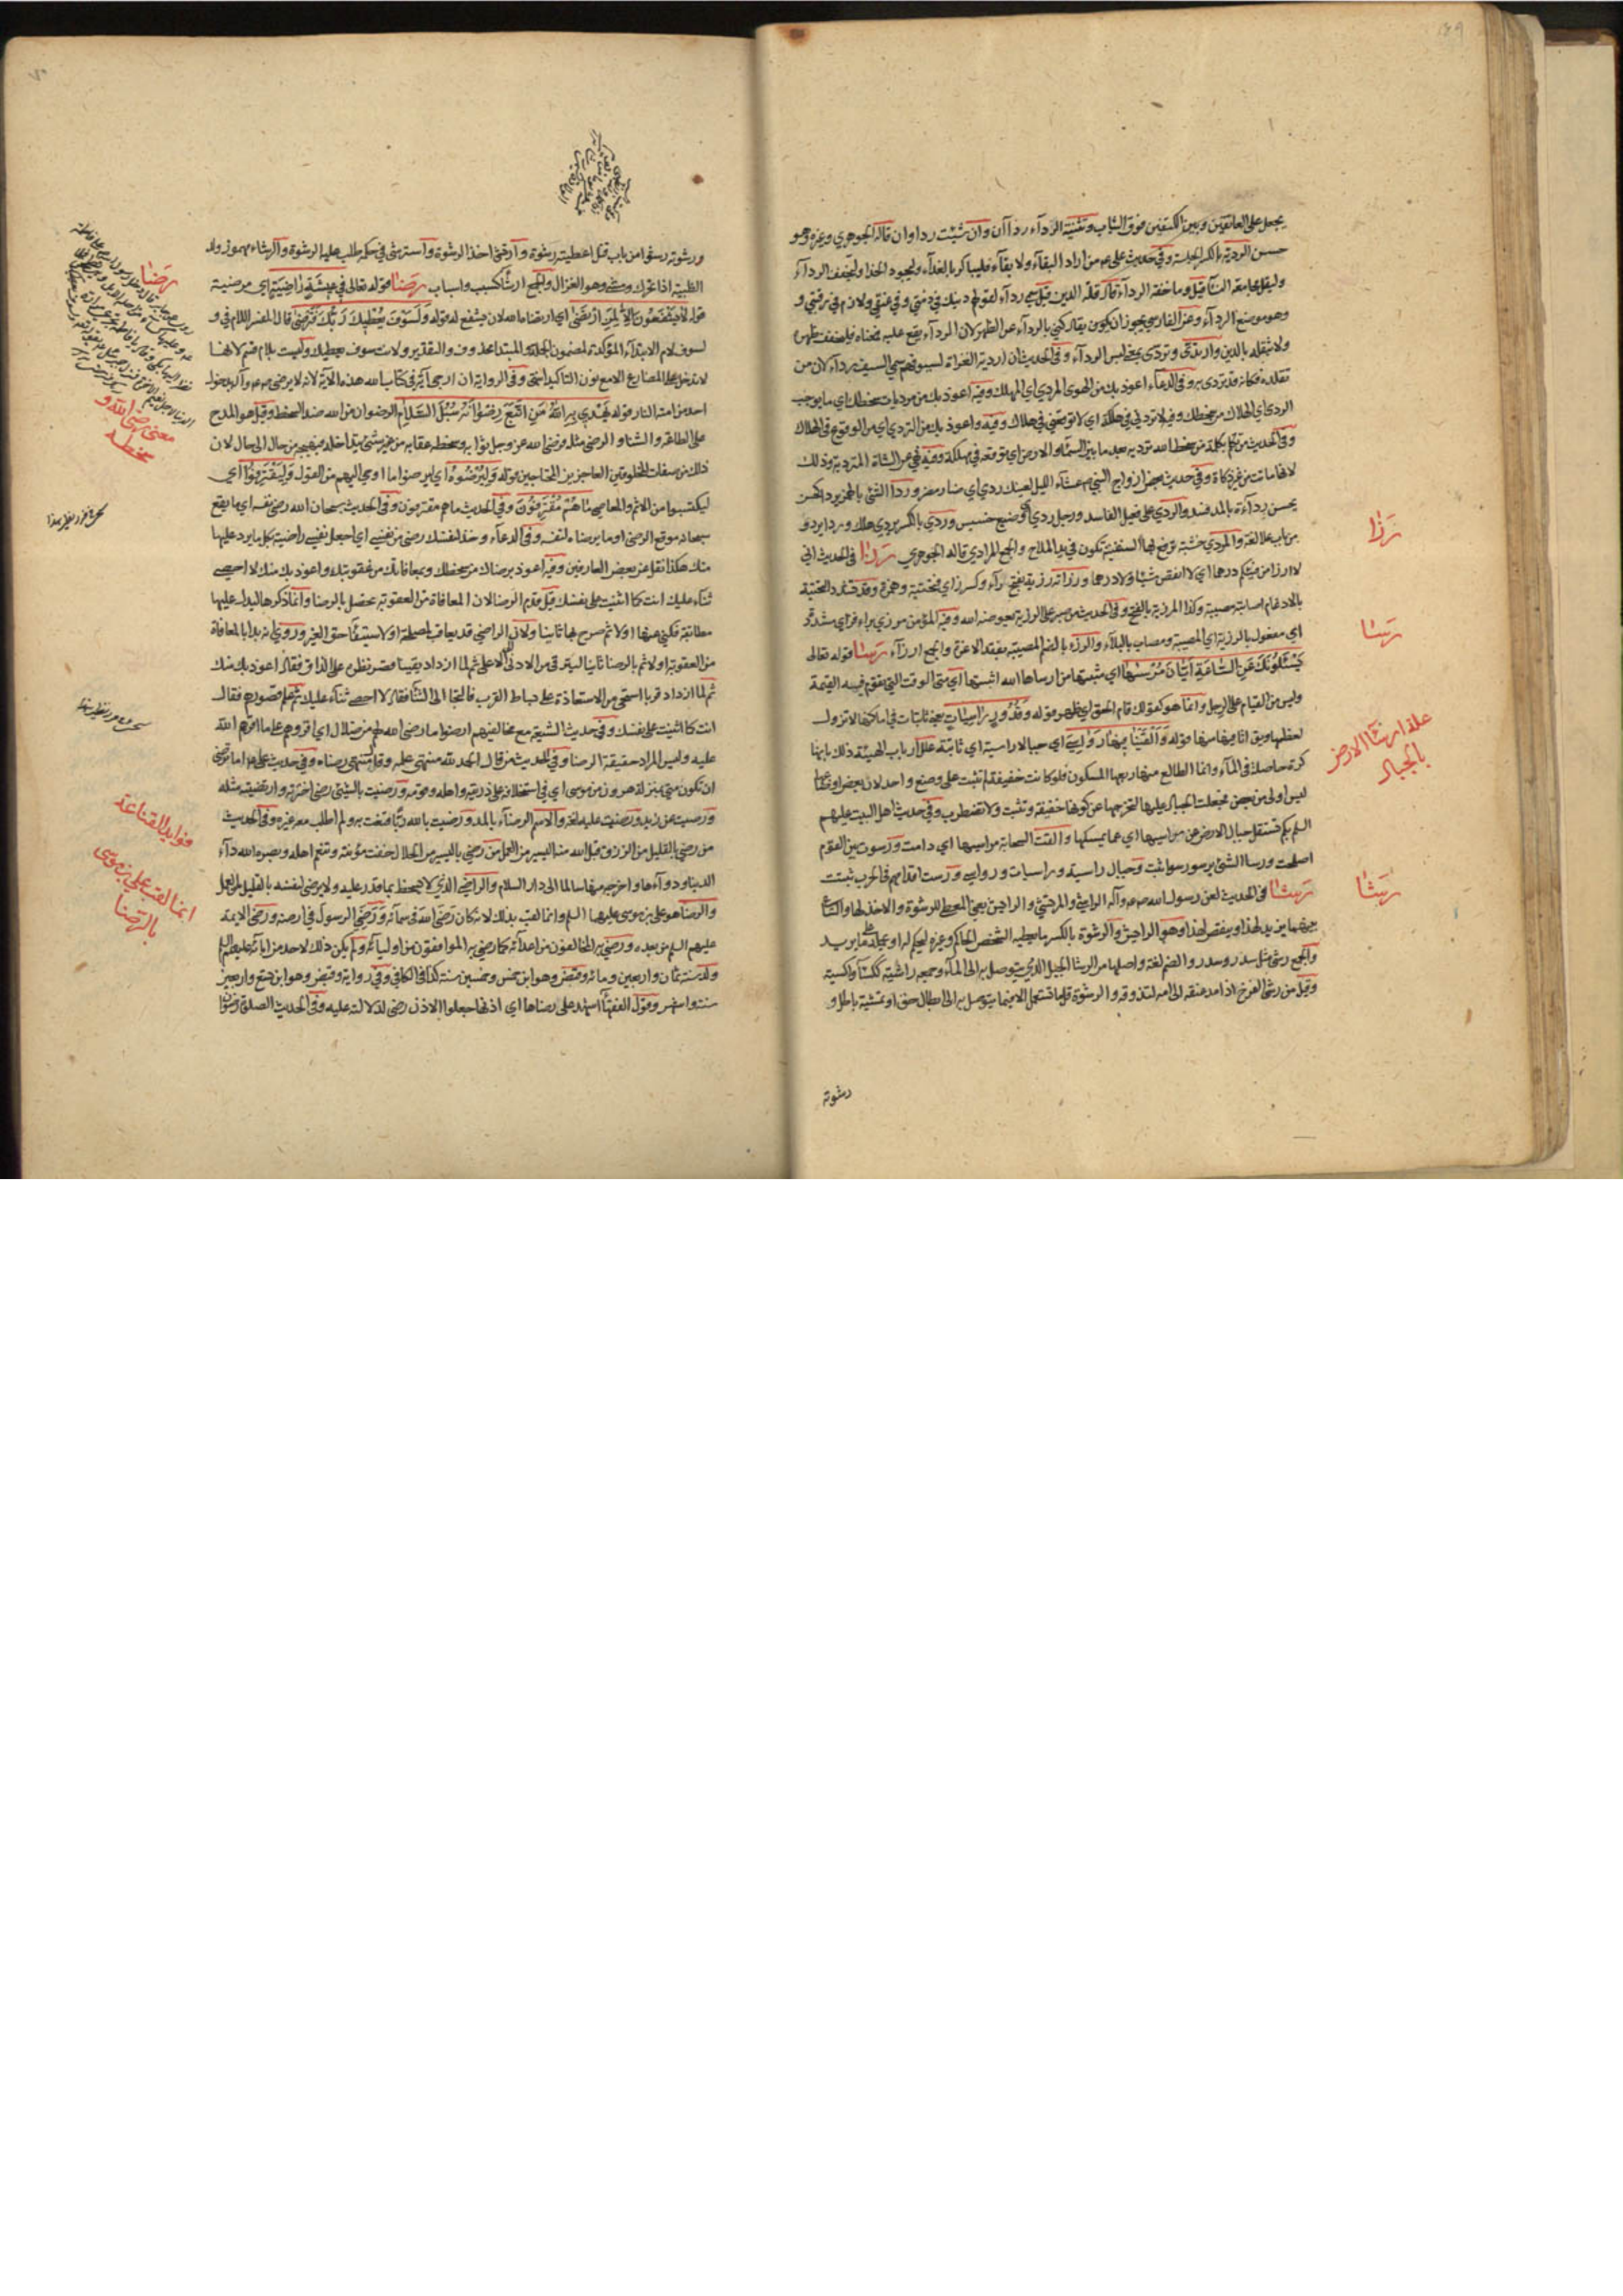 يجعل على العاتقين وبين الكتفين فوق الثياب وتثنية الرداء رداآن وان شئت رداوان قاله الجوهري وغيره وهو
حسن الردية بالكسر كالجلسة وفي حديث علي ع من اراد البقاء ولا بقاء فليباكر بالغداء وليجود الحذا وليخفف الرداء
وليقل مجامعة النساء قيل وما خفة الرداء قال قلة الدين قيل سمي رداء لقولهم دينك في ذمتي وفي عنقي ولازم في رقبتي و
وهو موضع الرداء وعن الفارسي يجوز ان يكون يقال كني بالرداء عن الظهر لان الرداء يقع عليه فمعناه فليخفف ظهره
ولا يثقله بالدين وارتدى وتردى بمعنى لبس الرداء وفي الحديث ان اردية الغزاة لسيوفهم سمي السيف رداء لان من
تقلده فكانه قد تردى به وفي الدعاء اعوذ بك من الهوى المردي اي المهلك وفيه اعوذ بك من مرديات سخطك اي ما يوجب
الردى اي الهلاك من سخطك وفيه لا تردني في هلكة اي لا توقعني في هلاك وفيه واعوذ بك من التردي اي من الوقوع في الهلاك
وفي الحديث من تكلم بكلمة من سخط الله ترديه بعد ما بين السماء والارض اي توقعه في مهلكة وفيه نهي عن الشاة المتردية وذلك
لانها ماتت من غير ذكاة وفي حديث بعض ازواج النبي ص
يحسن رداءة بالمد فسد والردي على فعيل الفاسد ورجل ردي اي وضيع خسيس وردي بالكسر يردى هلك وردا يردو
من باب علا لغة والمردي خشبة تدفع بها السفينة تكون في يد الملاح والجمع المرادي قاله الجوهري رزا في الحديث اني
لا ارزا من فيئكم درهما اي لا انقص شيئا ولا درهما ورزاته رزية بفتح راء وكسر زاي فتحتية وهمزة وقد تشدد التحتية
بالادغام اصابته مصيبة وكذا المرزية بالفتح وفي الحديث من صبر على الرزية يعوضه الله وفيه المؤمن مرزى براء فزاي مشددة
اي مفعول بالرزية اي المصيبة ومصاب بالبلاء والرزء بالضم المصيبة بفقد الاعزة والجمع ارزاء رسا قوله تعالى
يسئلونك عن الساعة ايان مرسها اي مثبتها من ارساها الله اثبتها اي متى الوقت التي تقوم فيه القيمة
وليس من القيام على الرجل وانما هو كقولك قام الحق اي ظهر قوله وقدور راسيات يعني ثابتات في اماكنها لا تزول
لعظمها ويقال اثافيها منها قوله والقينا فيها رواسي اي جبالا راسية اي ثابتة علل ارباب الهيئة ذلك بانها
كرة حاصلة في الماء وانما الطالع منها ربعها المسكون فلو كانت خفيفة لم تثبت على وضع واحد لان بعض اوضاعها
ليس اولى من بعض فجعلت الجبال عليها لتخرجها عن كونها خفيفة وتثبت ولا تضطرب وفي حديث اهل البيت عليهم
السلم بكم تستقل جبال الارض عن مراسيها اي عما يمسكها والقت السحابة مراسيها اي دامت ورسوت بين القوم
اصلحت ورسا الشيء يرسو رسوا ثبت وجبال راسية وراسيات ورواسي ورست اقدامهم في الحرب ثبتت
رشا في الحديث لعن رسول الله ص وآله الراشي والمرتشي والرايش يعني المعطي للرشوة والاخذ لها والساعي
بينهما يزيد لهذا وينقص لهذا وهو الرايش والرشوة بالكسر ما يعطيه الشخص الحاكم وغيره ليحكم له او يحمله على ما يريد
والجمع رشى مثل سدرة وسدر والضم لغة واصلها من الرشا الحبل الذي يتوصل به الى الماء وجمعه ارشية ككساء واكسية
وقيل من رشا الفرخ اذا مد عنقه الى امه لتزقه والرشوة قلما تستعمل الا فيما يتوصل به الى ابطال حق او تمشية باطل و
رشوته
رزا
رسا
علة ارساء الارض
بالجبال
رشا
ورشوته رشوا من باب قتل اعطيته رشوة وارتشى اخذ الرشوة واسترشى في حكمه طلب عليه الرشوة والرشاء مهموز ولد
الظبية اذا تحرك ومشى وهو الغزال والجمع ارشاء كسبب واسباب رضا قوله تعالى في عيشة راضية اي مرضية
قوله لا يشفعون الا لمن ارتضى اي ارتضاه الله لان يشفع له قوله ولسوف يعطيك ربك فترضى قال المفسر اللام في و
لسوف لام الابتداء المؤكدة لمضمون الجملة والمبتدا محذوف والتقدير ولانت سوف يعطيك وليست بلام قسم لانها
لا تدخل على المضارع الا مع نون التاكيد انتهى وفي الرواية ان ارجى آية في كتاب الله هذه الآية لانه لا يرضى ص وآله بدخول
احد من امته النار قوله يهدي به الله من اتبع رضوانه سبل السلام الرضوان من الله ضد السخط وقيل هو المدح
على الطاعة والثناء والرضى مثله فرضى الله عز وجل ثوابه وسخطه عقابه من غير شيء يتداخله فيهيجه من حال الى حال لان
ذلك من صفات المخلوقين العاجزين المحتاجين قوله وليرضوه اي ليرضوا ما اوحي اليهم من القول وليقترفوا اي
ليكتسبوا من الاثم والمعاصي ما هم مقترفون وفي الحديث سبحان الله رضى نفسه اي ما يقع
سبحانه موقع الرضى او ما يرضاه لنفسه وفي الدعاء وخذ لنفسك رضى من نفسي اي اجعل نفسي راضية بكل ما يرد عليها
منك هكذا نقل عن بعض العارفين وفيه اعوذ برضاك من سخطك وبمعافاتك من عقوبتك واعوذ بك منك لا احصي
ثناء عليك انت كما اثنيت على نفسك قيل قدم الرضا لان المعافاة من العقوبة تحصل بالرضا وانما ذكرها ليدل عليها
مطابقة فكني عنها اولا ثم صرح بها ثانيا ولان الراضي قد يعاقب لمصلحة او لاستيفاء حق الغير وروي انه بدا بالمعافاة
من العقوبة اولا ثم بالرضا ثانيا ليترقى من الادنى الى الاعلى ثم لما ازداد يقينا قصر نظره على الذات فقال اعوذ بك منك
ثم لما ازداد قربا استحيى من الاستعاذة على بساط القرب فالتجا الى الثناء فقال لا احصي ثناء عليك ثم علم قصوره فقال
انت كما اثنيت على نفسك وفي حديث الشيعة مع مخالفيهم ارضوا ما رضي الله لهم من ضلال اي اقروهم على ما اقرهم الله
عليه وليس المراد حقيقة الرضا وفي الحديث من قال الحمد لله منتهى علمه وقل منتهى رضاه وفي حديث علي ع اما ترضى
ان تكون مني بمنزلة هرون من موسى اي في استخلافه على ذريته واهله وقومه ورضيت بالشيء رضى اخترته وارتضيته مثله
ورضيت عن زيد ورضيت عليه لغة والاسم الرضاء بالمد ورضيت بالله ربا قنعت به ولم اطلب معه غيره وفي الحديث
من رضي بالقليل من الرزق قبل الله منه اليسير من العمل من رضي باليسير من الحلال خفت مؤنته وتنعم اهله وبصره الله داء
الدنيا ودواءها واخرجه منها سالما الى دار السلام والراضي الذي لا يسخط بما قدر عليه ولا يرضى لنفسه بالقليل من العمل
والرضا هو علي بن موسى عليهما السلم وانما لقب بذلك لانه كان رضى الله في سمائه ورضى الرسول في ارضه ورضى الايمة
عليهم السلم من بعده ورضي به المخالفون من اعدائه كما رضي به الموافقون من اوليائه ولم يكن ذلك لاحد من آبائه عليهم السلم
ولد سنة ثمان واربعين ومائة وقبض وهو ابن خمس وخمسين سنة كذا في الكافي وفي رواية وقبض وهو ابن تسع واربعين
سنة واشهر وقول الفقهاء اشهد على رضاها اي اذنها جعلوا الاذن رضى لدلالته عليه وفي الحديث الصلوة رضوان
رضا
معنى رضى الله و
سخطه
فوايد القناعة
انما لقب علي بن موسى
بالرضا